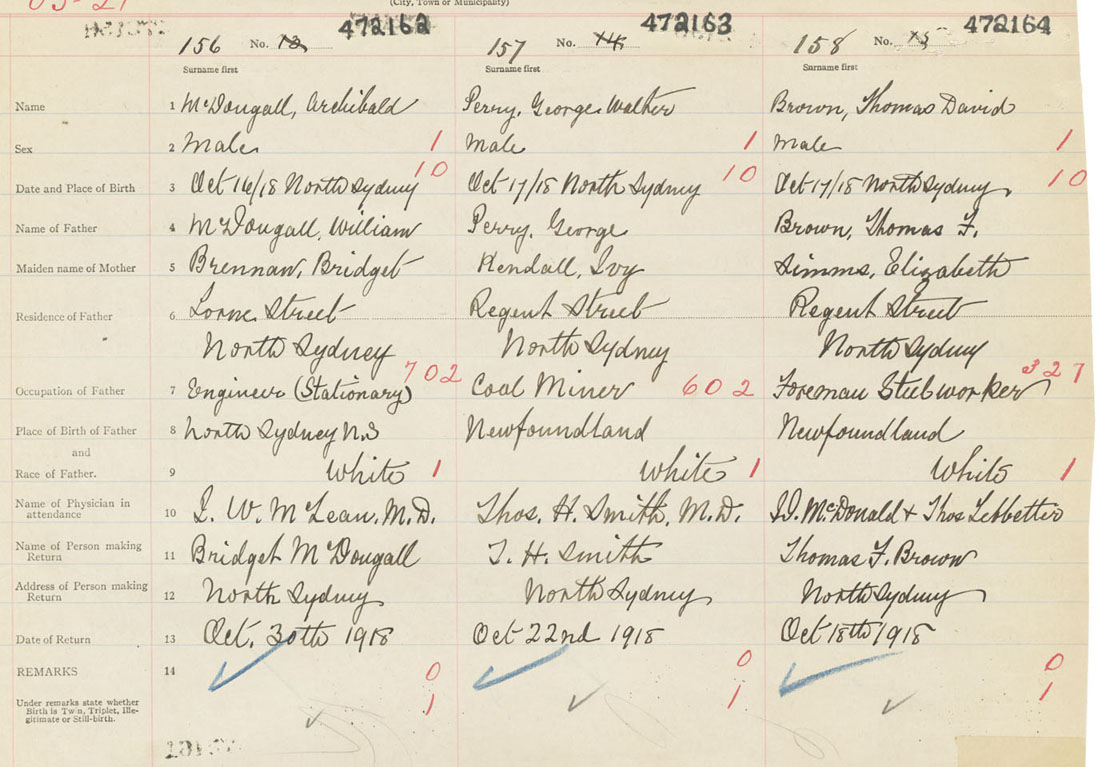 05-21
(City, Town or Municipality)
472162 472163 472164
156 No. 13 157 No. 14 158 No. 15
Surname first Surname first Surname first
Name 1 McDougall, Archibald Perry, George Walter Brown, Thomas David
Sex 2 Male 1 Male 1 Male 1
Date and Place of Birth 3 Oct 16/18 North Sydney 10 Oct 17/18 North Sydney 10 Oct 17/18 North Sydney 10
Name of Father 4 McDougall, William Perry, George Brown, Thomas F.
Maiden name of Mother 5 Brennan, Bridget Kendall, Ivy Simms, Elizabeth
Residence of Father 6 Lorne Street Regent Street Regent Street
North Sydney North Sydney North Sydney
Occupation of Father 7 Engineer (Stationary) 702 Coal Miner 602 Foreman Steelworker 327
Place of Birth of Father 8 North Sydney N.S Newfoundland Newfoundland
and
Race of Father. 9 White 1 White 1 White 1
Name of Physician in
attendance 10 L. W. McLean, M.D. Thos. H. Smith, M.D. McDonald + Thos Ledbetter
Name of Person making
Return 11 Bridget McDougall T. H. Smith Thomas F. Brown
Address of Person making
Return 12 North Sydney North Sydney North Sydney
Date of Return 13 Oct. 30th 1918 Oct 22nd 1918 Oct 18th 1918
REMARKS 14 0 0 0
Under remarks state whether
Birth is Twin, Triplet, Ille-
gitimate or Still-birth. 1 1 1